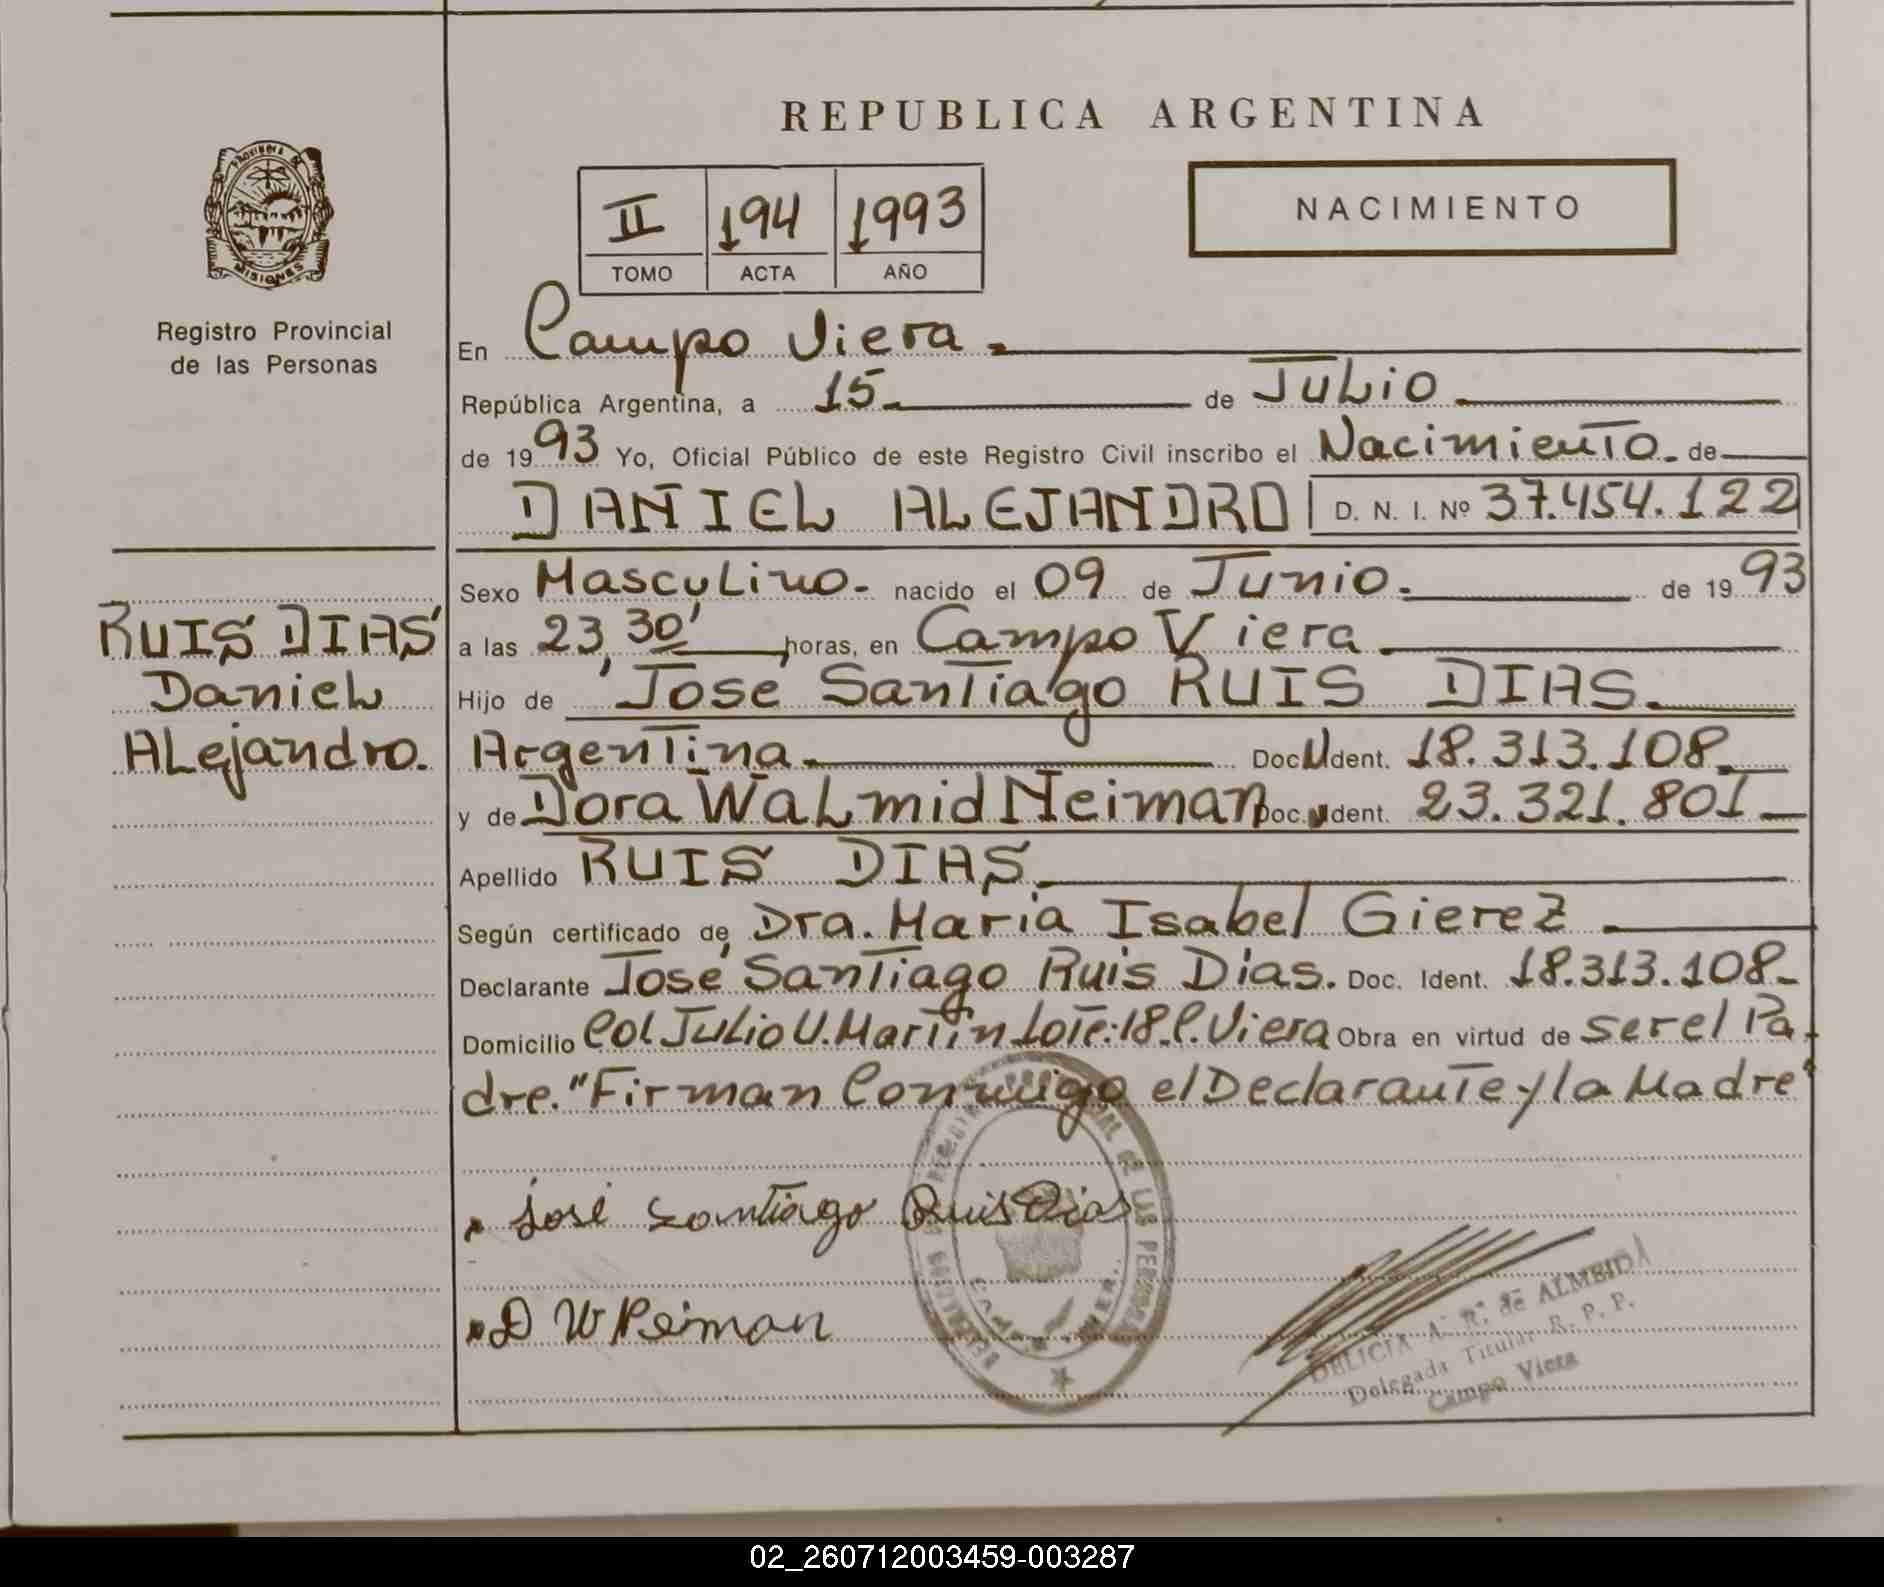 REPUBLICA ARGENTINA
PROVINCIA DE
MISIONES
Registro Provincial
de las Personas
II 194 1993
TOMO ACTA AÑO
NACIMIENTO
En Campo Viera.
República Argentina, a 15 de Julio
de 1993 Yo, Oficial Público de este Registro Civil inscribo el Nacimiento de
DANIEL ALEJANDRO D. N. I. Nº 37.454.122
Sexo Masculino. nacido el 09 de Junio. de 1993
a las 23,30' horas, en Campo Viera.
Hijo de Jose Santiago RUIS DIAS.
Argentina. Doc. Ident. 18.313.108
y de Dora Walmid Neiman Doc. Ident. 23.321.801
Apellido RUIS DIAS.
Según certificado de Dra. Maria Isabel Gierez
Declarante José Santiago Ruis Dias. Doc. Ident. 18.313.108
Domicilio Col Julio U. Martin Lote:18 C. Viera Obra en virtud de ser el Pa
dre. "Firman Conmigo el Declarante y la Madre"
RUIS DIAS
Daniel
Alejandro.
José Santiago Ruis Dias
D W Neiman
DE LAS PERSONAS
DELICIA A. R. de ALMEIDA
Delegada Titular R. P. P.
Campo Viera
02_260712003459-003287